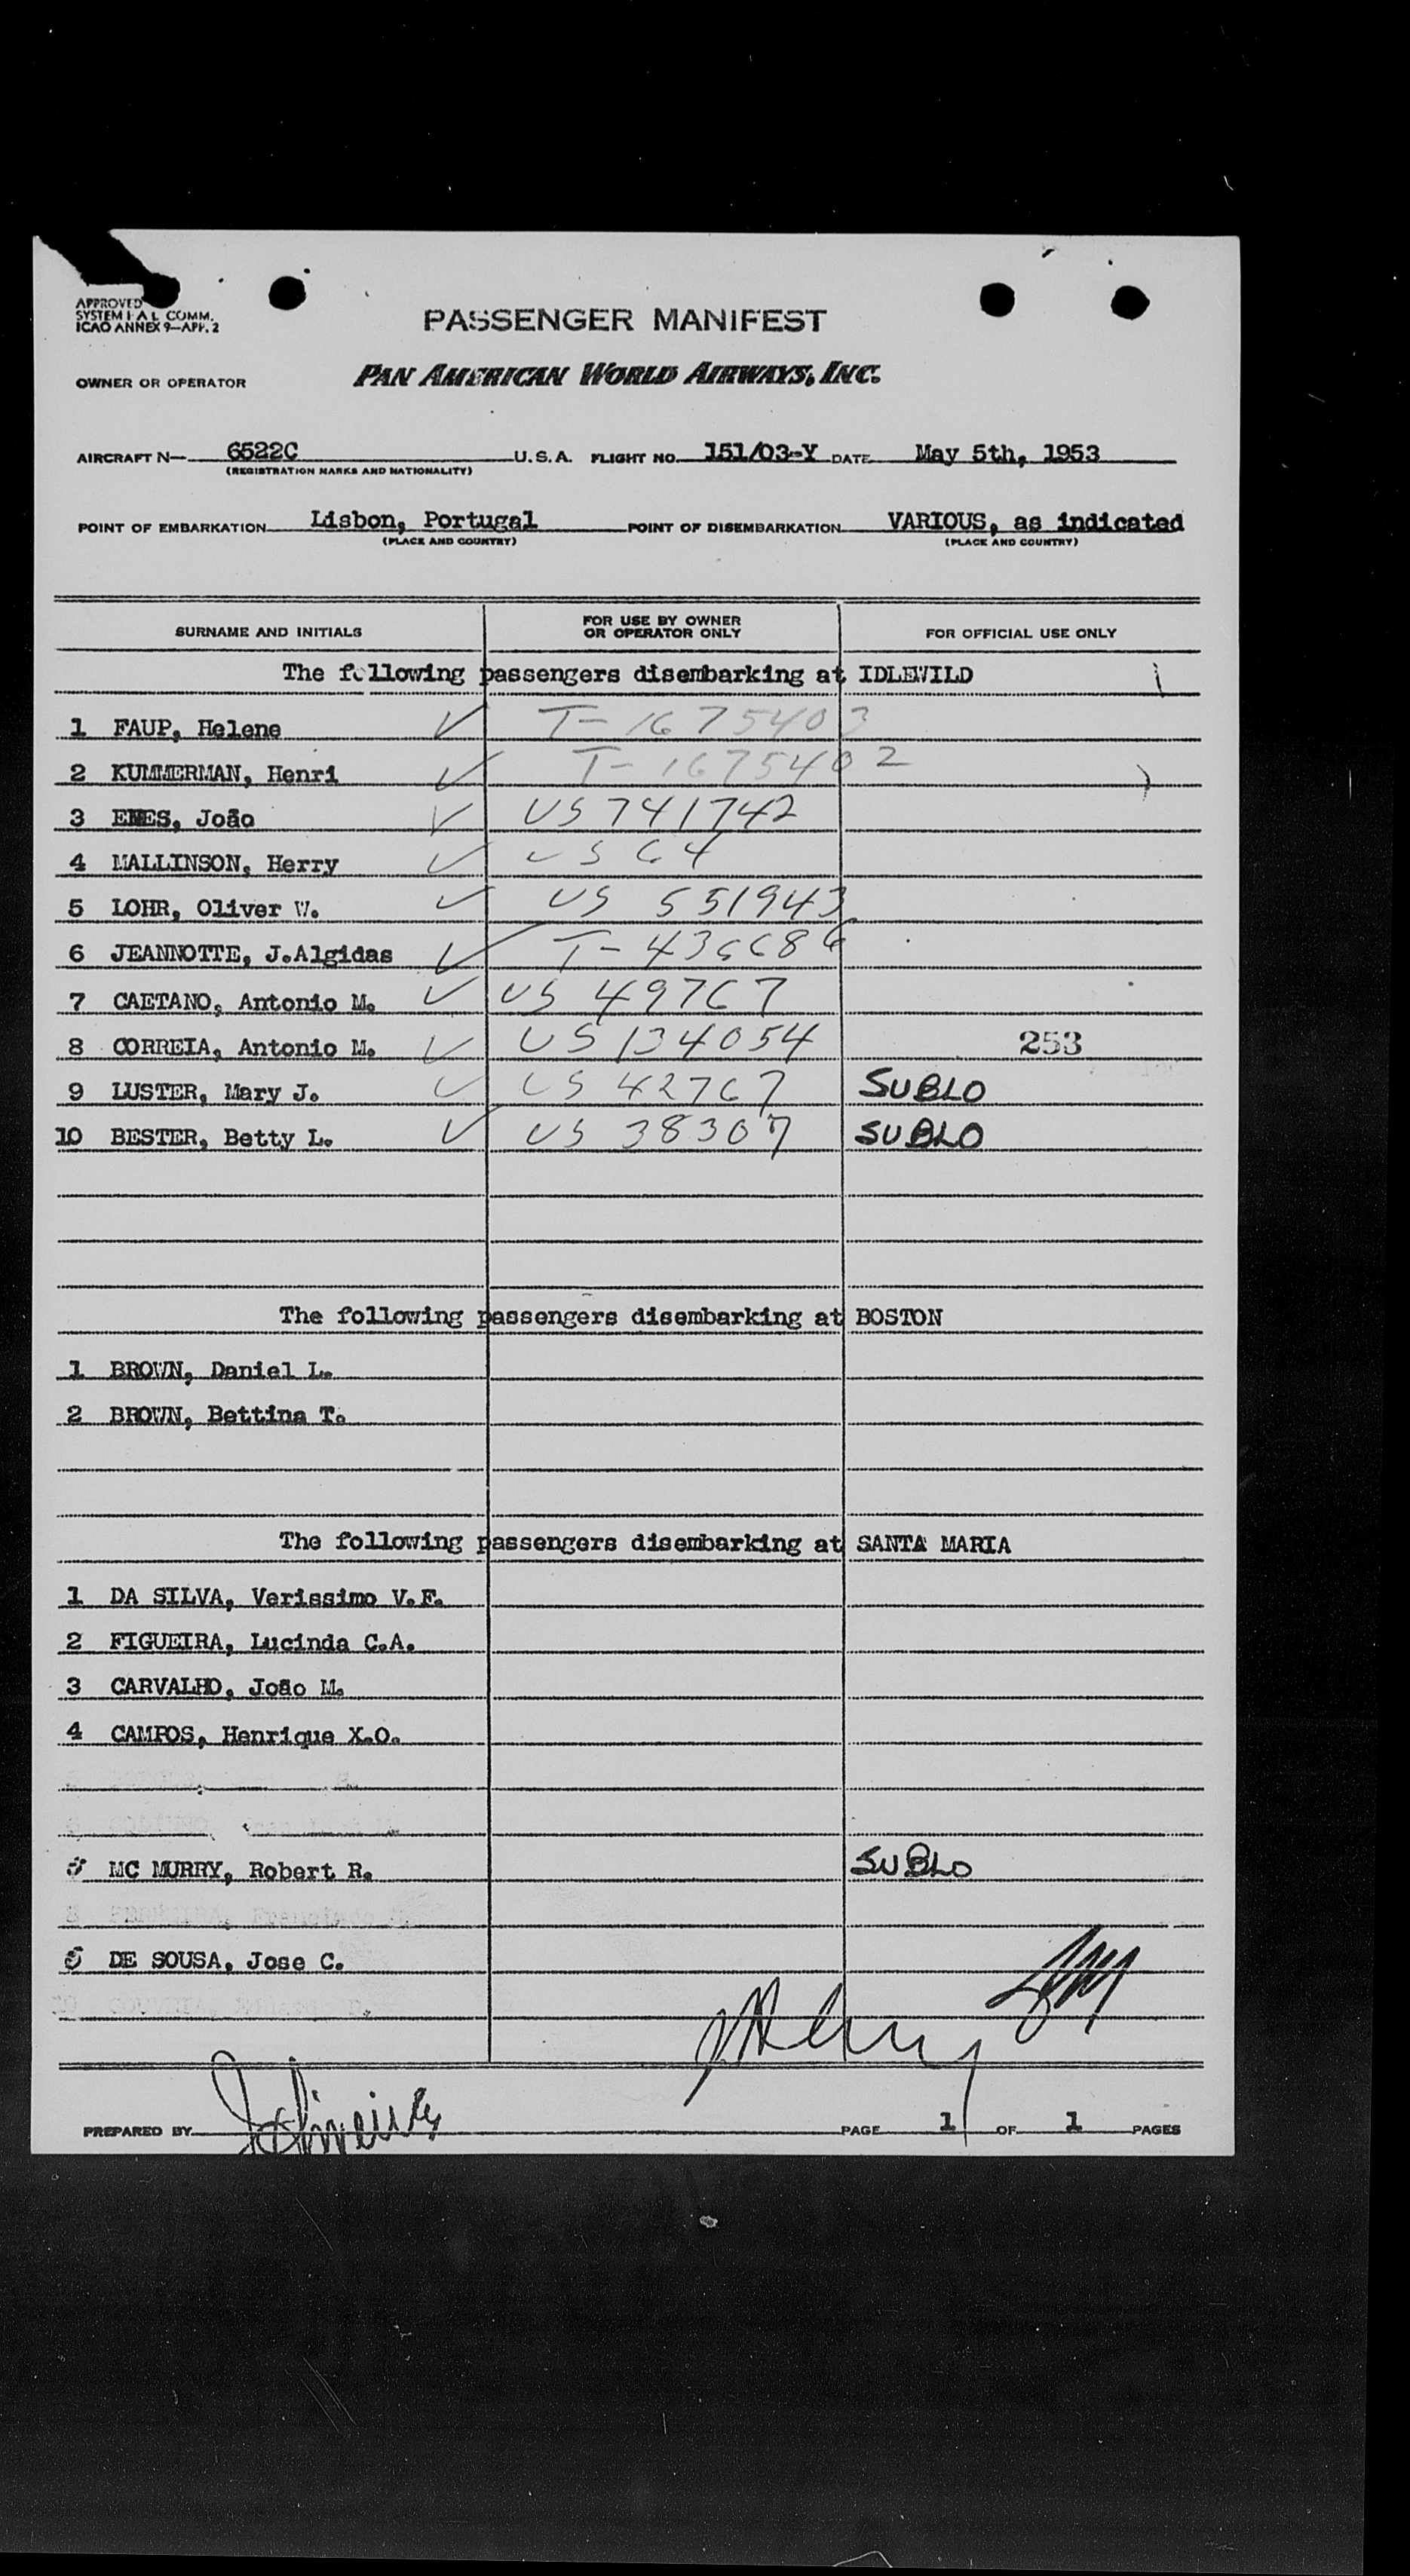 APPROVED
SYSTEM F A L COMM.
ICAO ANNEX 9—APP. 2
PASSENGER MANIFEST
OWNER OR OPERATOR PAN AMERICAN WORLD AIRWAYS, INC.
AIRCRAFT N— 6522C U.S.A. FLIGHT NO. 151/03-Y DATE May 5th, 1953
(REGISTRATION MARKS AND NATIONALITY)
POINT OF EMBARKATION Lisbon, Portugal POINT OF DISEMBARKATION VARIOUS, as indicated
(PLACE AND COUNTRY) (PLACE AND COUNTRY)
SURNAME AND INITIALS FOR USE BY OWNER OR OPERATOR ONLY FOR OFFICIAL USE ONLY
The following passengers disembarking at IDLEWILD
1 FAUP, Helene ✓ T-1675403
2 KUMMERMAN, Henri ✓ T-1675402
3 João ✓ US 741742
4 MALLINSON, Herry ✓ US 64
5 LOHR, Oliver W. ✓ US 551943
6 JEANNOTTE, J.Algidas ✓ T-436686
7 CAETANO, Antonio M. ✓ US 49767
8 CORREIA, Antonio M. ✓ US 134054 253
9 LUSTER, Mary J. ✓ US 42767 SUBLO
10 BESTER, Betty L. ✓ US 38307 SUBLO
The following passengers disembarking at BOSTON
1 BROWN, Daniel L.
2 BROWN, Bettina T.
The following passengers disembarking at SANTA MARIA
1 DA SILVA, Verissimo V.F.
2 FIGUEIRA, Lucinda C.A.
3 CARVALHO, João M.
4 CAMPOS, Henrique X.O.
MC MURRY, Robert R. SUBLO
DE SOUSA, Jose C.
PREPARED BY PAGE 1 OF 1 PAGES